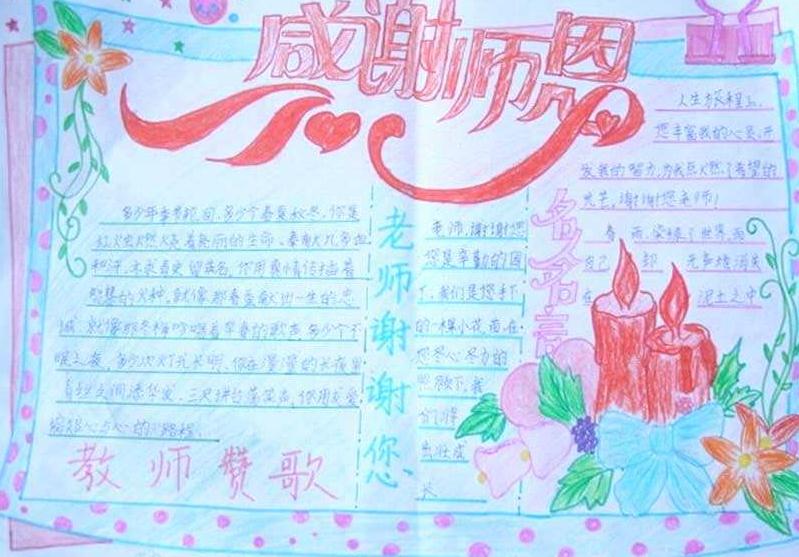 感谢师恩
多少年季节轮回,多少个春夏秋冬,你是
红火烛燃烧着美丽的生命、奉献几多血
和汗、不求青史留英名,你用真情传播着
智慧的火种,就像那春蚕献出一生的忠
诚 就像那冬梅吟唱着早春的歌声,多少个不
眠之夜,多少次灯光长明,你在漫漫的长夜里
三尺讲台 你用友爱
缩短心与心的路程、
教师赞歌
老师谢谢您、
老师,谢谢您
您是辛勤的园
丁,我们是您手下
的一棵小花苗,在
您尽心尽力的
照顾下,我
们将
茁壮成
长
名人名言
人生旅程上,
您丰富我的心灵,开
发我的智力,为我点燃了希望的
光芒,谢谢您老师!
春雨,染绿了世界,而
自己却无声地消失
在泥土之中